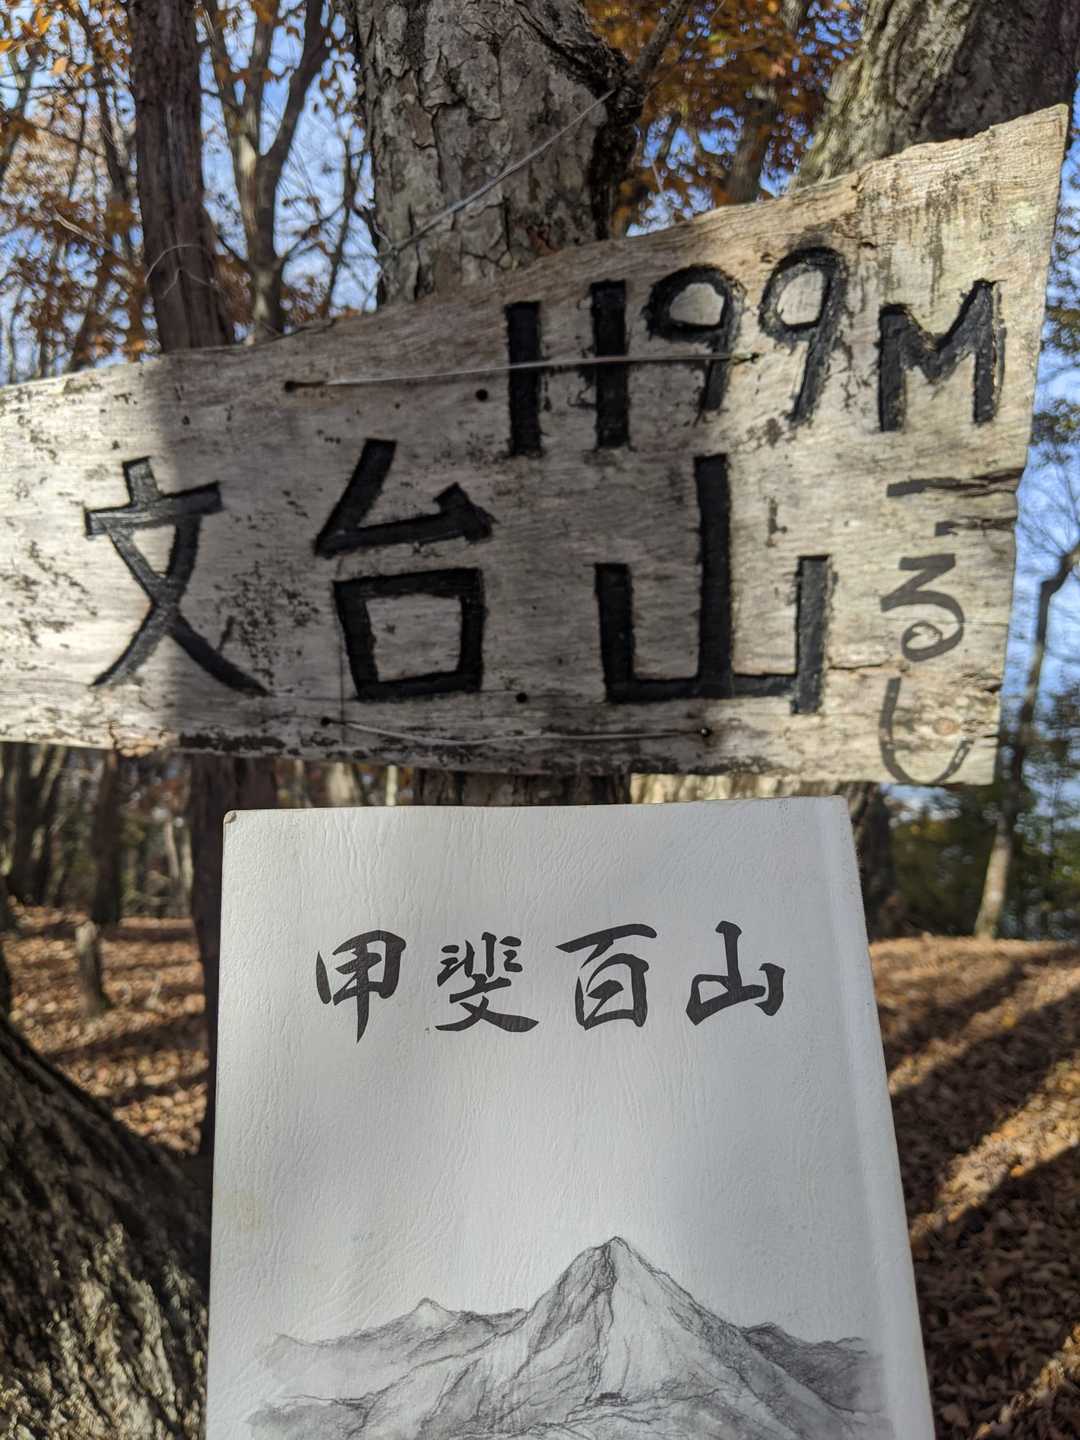 1199M
文台山
甲斐百山